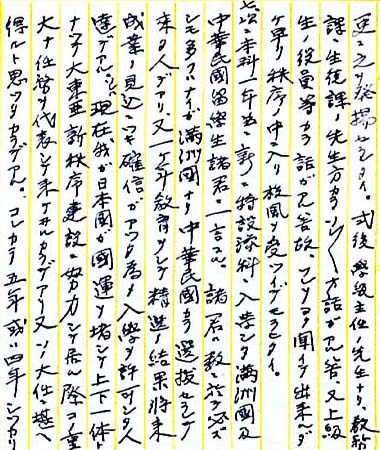 更ニ之ヲ発揚セシメタイ。式後、学級主任ノ先生ナリ、教務
課、生徒課ノ先生方カラ ソレ〲オ話ガアル筈、又上級
生ノ役員等カラ話ガアル筈故、ソレヲヨク聞イテ出来ルダ
ケ早ク秩序ノ中ニ入リ校風ヲ受ツイデモラヒタイ。
次ニ本科一年並ニ新ニ特設予科ニ入学シタ満洲国及
中華民国留学生諸君ニ一言スル 諸君ノ数ハ必ズ
シモ多クハナイガ満洲国ナリ中華民国カラ選抜セラレテ
来タ人デアリ、又一ケ年教育ヲシテ精選ノ結果将来
成業ノ見込ニツキ確信ガアツタ為メ入学ヲ許可シタ人
達デアル。現在、我ガ日本国ガ国運ヲ堵シ上下一体ト
ナツテ大東亜新秩序建設ニ努力シテ居ル際コノ重
大ナ任務ヲ代表シテ来テヰルカラデアリ又ソノ大任ニ堪ヘ
得ルト思ツタカラデアル。コレカラ五年或ハ四年シツカリ